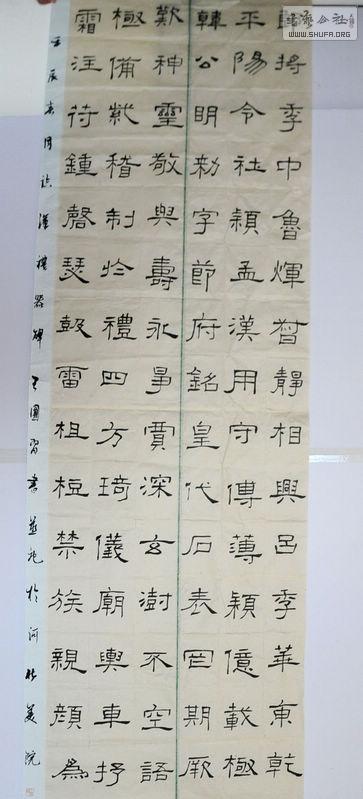 將季中魯煇晢靜相興呂季華東乾
平陽令社穎孟漢用守傅薄穎億載極
韓公明勑字節府銘皇代石表罔期厥
歎神靈敬與壽永賈深玄澍不空語
極備紫稽制於禮四方琦儀廟輿車抒
霜注待鍾磬瑟鼓雷柤梪禁族親顏為
壬辰春月臨漢禮器碑習書並記於河北美院
書法公社
WWW.SHUFA.ORG